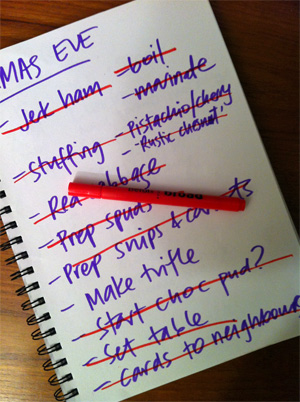 MAS EVE
- Jet ham - boil
- marinade
- Stuffing - Pistachio/cherry
- "Rustic chesnut"
- Red bbage
- Prep spuds
- Prep snips & ts
- Make trifle
- Start choc pud?
- Set table
- Cards to neighbours